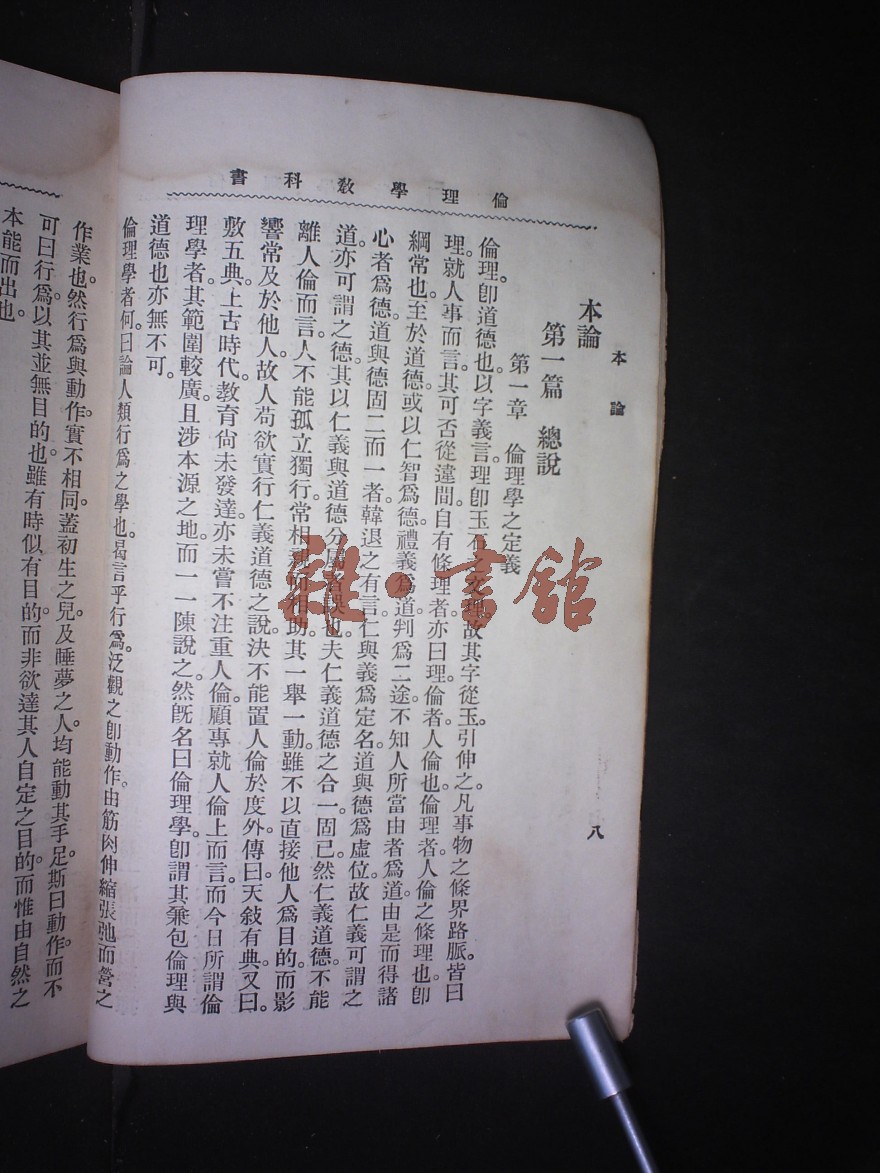 倫理學教科書
本論
八
本論
第一篇 總說
第一章 倫理學之定義
倫理。卽道德也。以字義言。理卽玉石之文理。故其字從玉。引伸之。凡事物之條界路脈。皆曰
理。就人事而言。其可否從違間。自有條理者。亦曰理。倫者人倫也。倫理者人倫之條理也。卽
綱常也。至於道德。或以仁智爲德。禮義爲道。判爲二途。不知人所當由者爲道。由是而得諸
心者爲德。道與德固二而一者。韓退之有言。仁與義爲定名。道與德爲虛位。故仁義可謂之
道。亦可謂之德。其以仁義與道德分屬者誤也。夫仁義道德之合一。固已然仁義道德。不能
離人倫而言。人不能孤立獨行。常相 而相助。其一舉一動。雖不以直接他人爲目的。而影
響常及於他人。故人苟欲實行仁義道德之說。決不能置人倫於度外。傳曰天敍有典。又曰。
敷五典。上古時代。教育尙未發達。亦未嘗不注重人倫。顧專就人倫上而言。而今日所謂倫
理學者。其範圍較廣。且涉本源之地。而一一陳說之。然旣名曰倫理學。卽謂其兼包倫理與
道德也亦無不可。
倫理學者何。曰論人類行爲之學也。曷言乎行爲。泛觀之卽動作。由筋肉伸縮張弛而營之
作業也。然行爲與動作。實不相同。蓋初生之兒。及睡夢之人。均能動其手足。斯曰動作。而不
可曰行爲。以其並無目的也。雖有時似有目的。而非欲達其人自定之目的。而惟由自然之
本能而出也
雜·書館